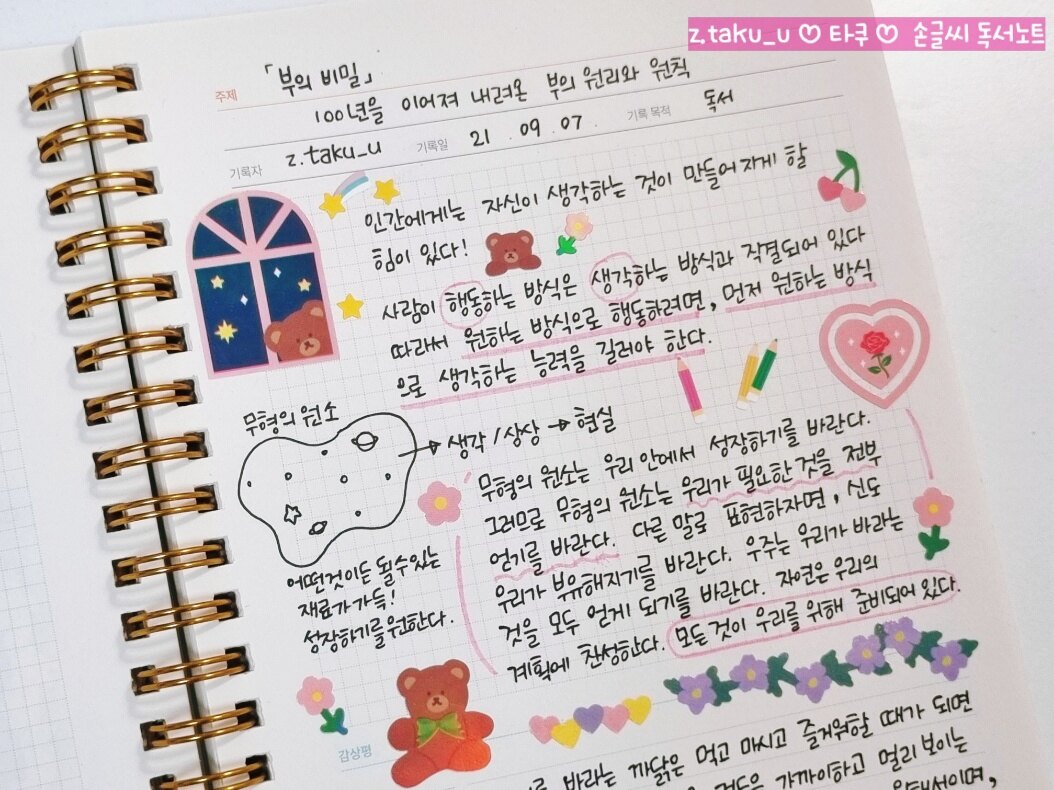 z.taku_u ♡ 타쿠 ♡ 손글씨 독서노트
주제 「부의 비밀」
100년을 이어져 내려온 부의 원리와 원칙
기록자 z.taku_u 기록일 21 . 09 . 07 . 기록 목적 독서
인간에게는 자신이 생각하는 것이 만들어지게 할
힘이 있다!
사람이 행동하는 방식은 생각하는 방식과 직결되어 있다
따라서 원하는 방식으로 행동하려면, 먼저 원하는 방식
으로 생각하는 능력을 길러야 한다.
무형의 원소
→ 생각 / 상상 → 현실
무형의 원소는 우리 안에서 성장하기를 바란다.
그러므로 무형의 원소는 우리가 필요한 것을 전부
얻기를 바란다. 다른 말로 표현하자면, 신도
우리가 부유해지기를 바란다. 우주는 우리가 바라는
것을 모두 얻게 되기를 바란다. 자연은 우리의
계획에 찬성한다. 모든 것이 우리를 위해 준비되어 있다.
어떤것이든 될수있는
재료가 가득!
성장하기를 원한다.
감상평
바라는 까닭은 먹고 마시고 즐거워할 때가 되면
가까이하고 멀리 보이는